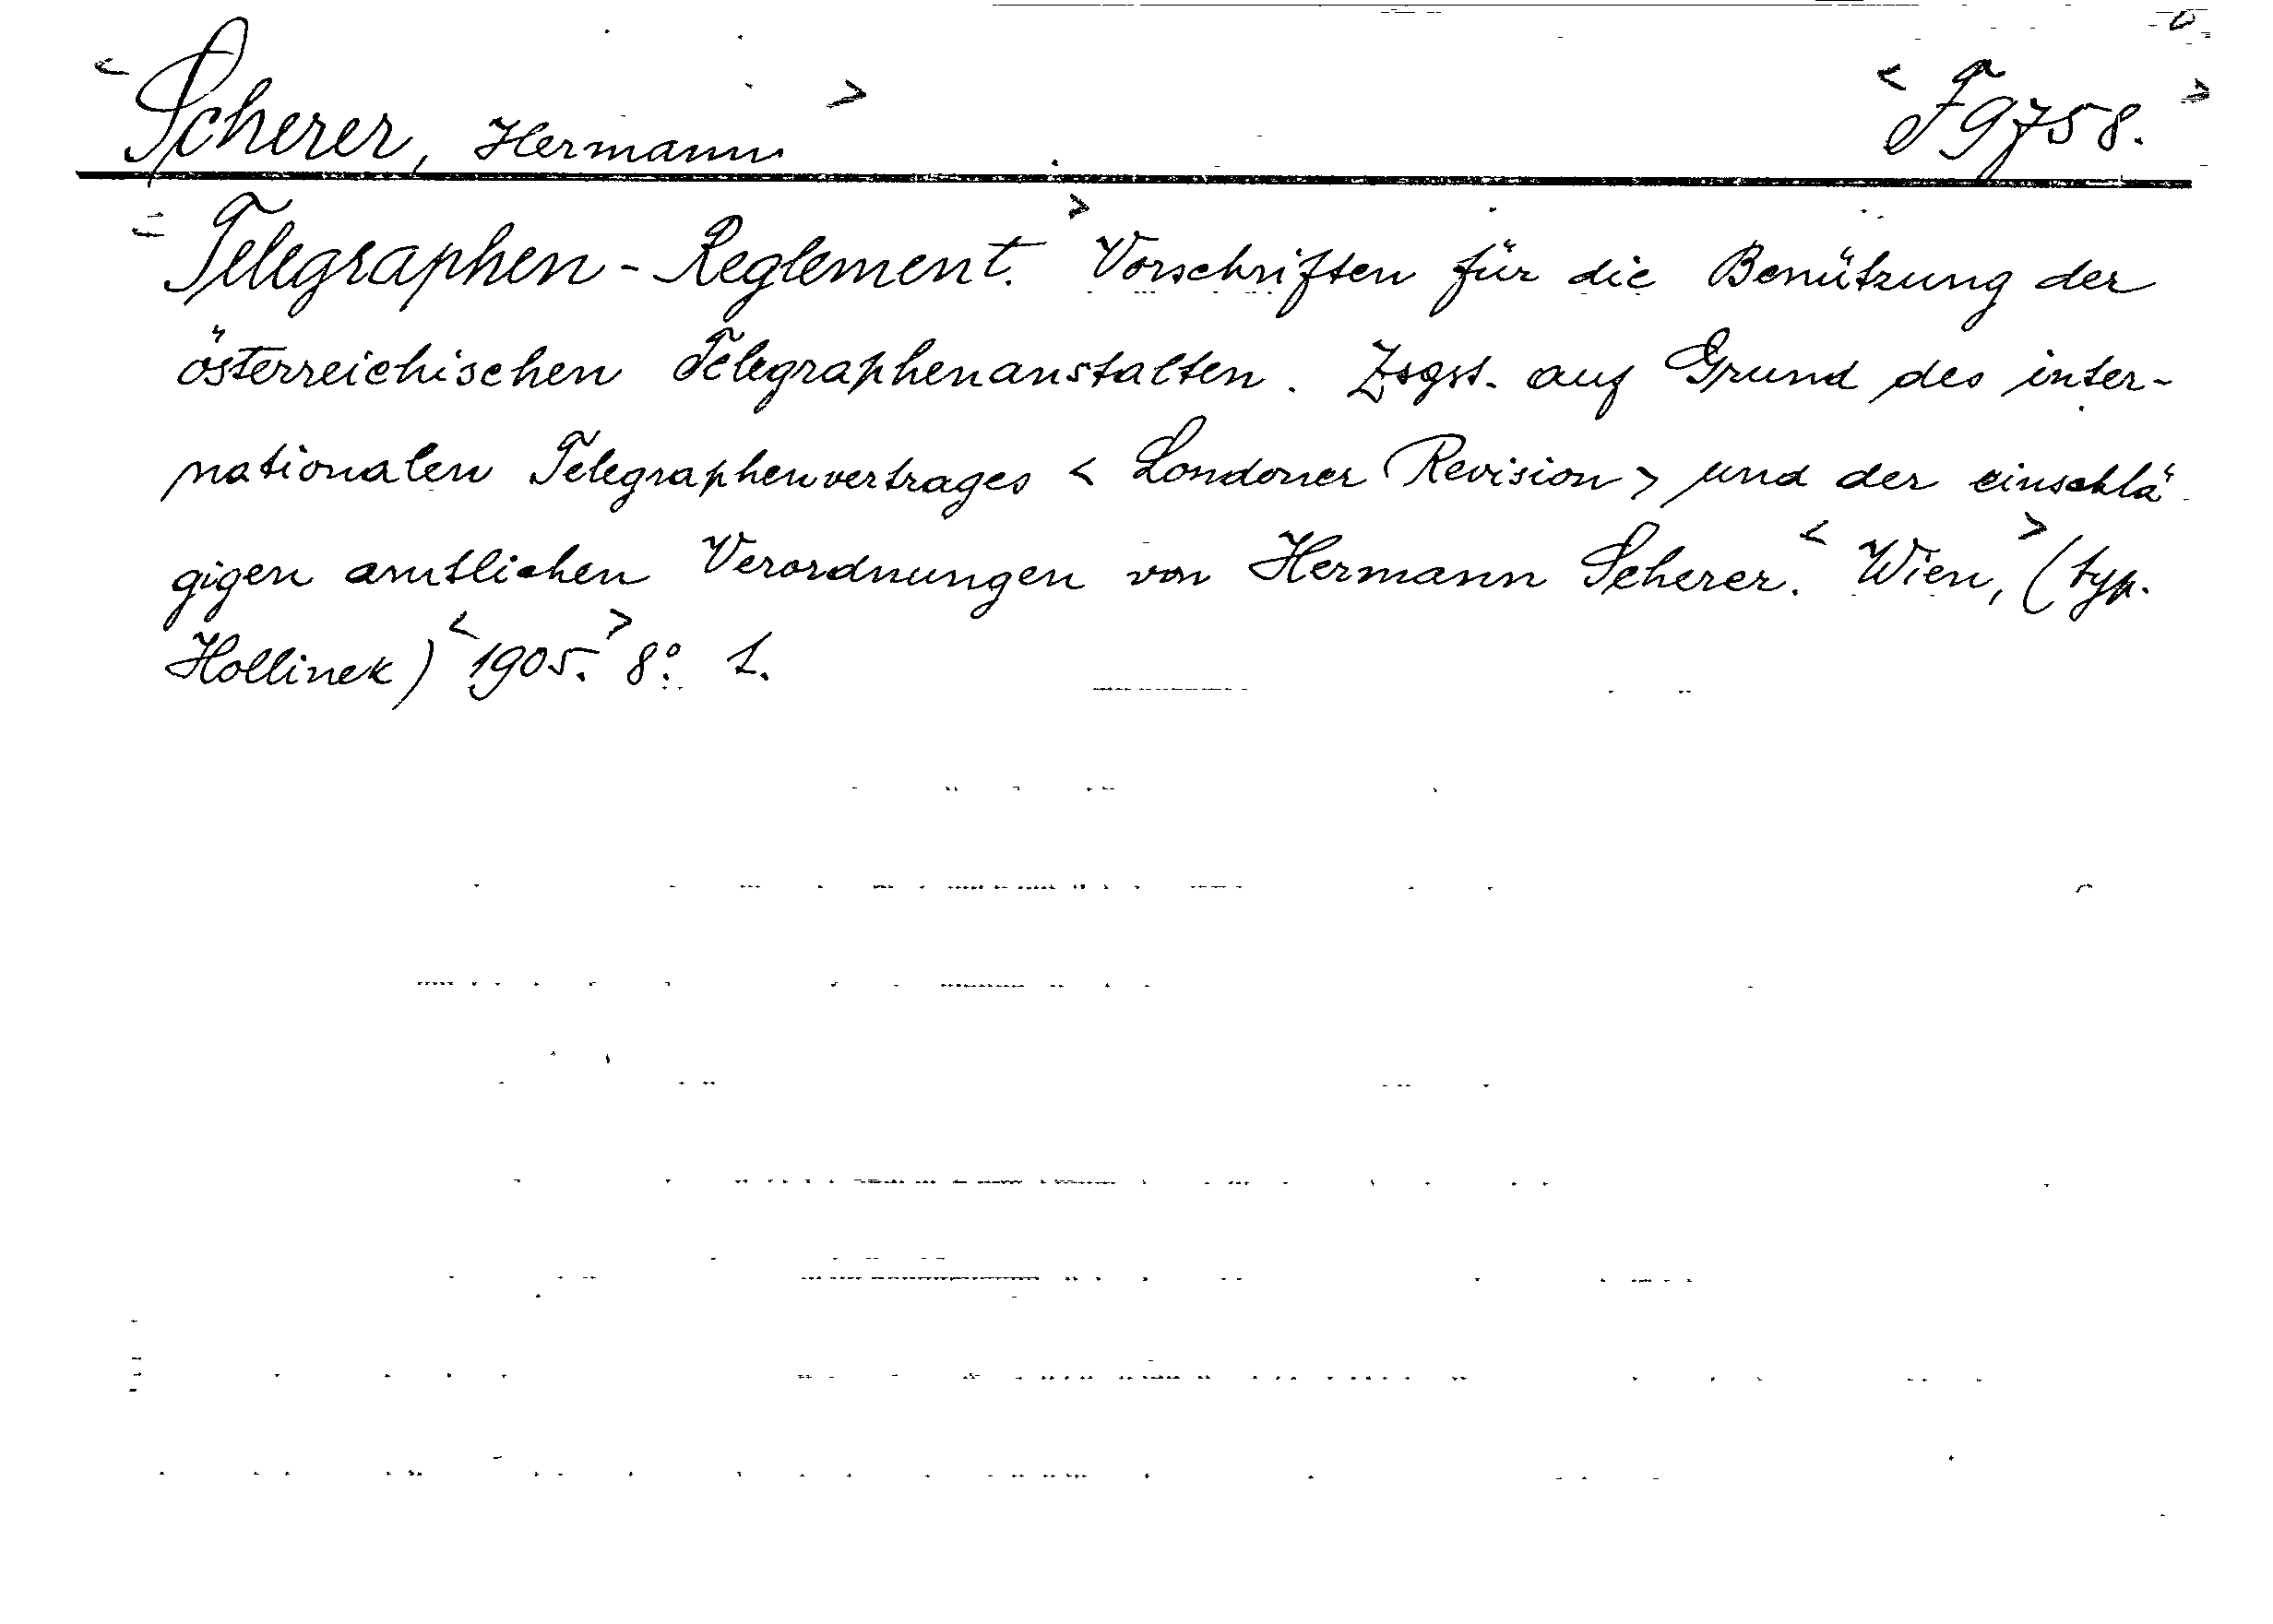 < Scherer, Hermann > < F 9758. >
= Telegraphen-Reglement. > Vorschriften für die Benützung der
österreichischen Telegraphenanstalten. Zsgst. auf Grund des inter-
nationalen Telegraphenvertrages < Londoner Revision > und der einschlä-
gigen amtlichen Verordnungen von Hermann Scherer. < Wien, > (typ.
Hollinek) < 1905. > 8º. 1.